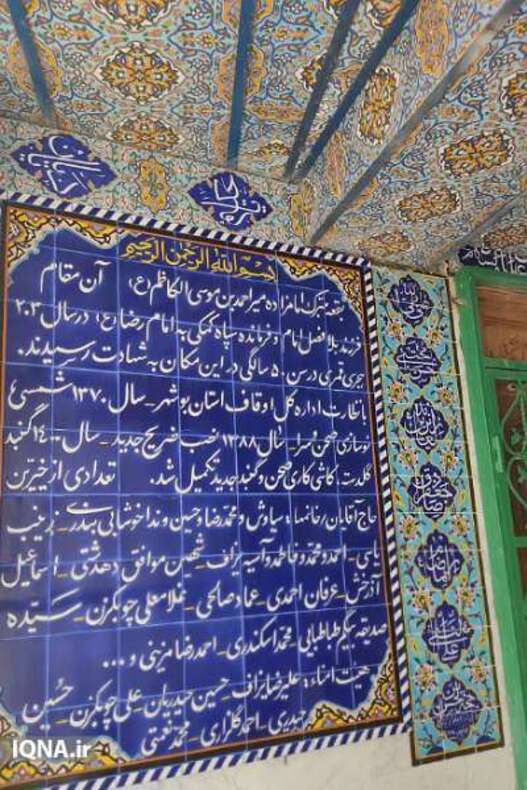 بسم الله الرحمن الرحیم
بقعه متبرکه امامزاده میر احمد بن موسی الکاظم (ع) آن مقام
فرزند بلافصل امام و فرمانده سپاه کمکی به امام رضا (ع) در سال ۲۰۳
هجری قمری در سن ۵۰ سالگی در این مکان به شهادت رسیدند.
با نظارت اداره کل اوقاف استان بوشهر - سال ۱۳۷۰ شمسی
نوسازی صحن و سرا - سال ۱۳۸۸ نصب ضریح جدید - سال ۱۴۰۰ گنبد
گلدسته، کاشی کاری صحن و گنبد جدید تکمیل شد. تعدادی از خیرین
حاج آقایان / خانمها: سیاوش و محمد رضا و حسین و ندا خوشابی بندری - زینب
یاسی - احمد و محمد و فاطمه و آسیه یزاف - شهین موافق دهدشتی - اسماعیل
آذرخش - عرفان احمدی - عماد صالحی - غلامعلی چوبکزن - سیده
صدیقه بیگم طباطبایی - محمد اسکندری - احمد رضا مزینی و ...
هیئت امناء: علیرضا یزاف - حسین حیدریان - علی چوبکزن - حسین
حیدری - احمد گلزاری - محمد نعمتی
IQNA.ir